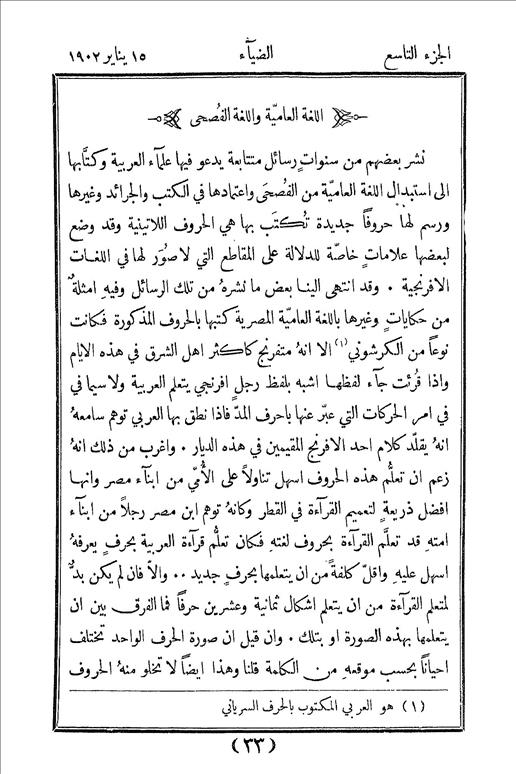 الجزء التاسع الضيآء ١٥ يناير ١٩٠٢
اللغة العاميّة واللغة الفُصحى
نشر بعضهم من سنواتٍ رسائل متتابعة يدعو فيها علمآء العربية وكتَّابها
الى استبدال اللغة العاميّة من الفُصحَى واعتمادها في الكتب والجرائد وغيرها
ورسم لها حروفًا جديدة تُكتَب بها هي الحروف اللاتينية وقد وضع
لبعضها علاماتٍ خاصّة للدلالة على المقاطع التي لا صُوَر لها في اللغات
الافرنجية . وقد انتهى الينا بعض ما نشرهُ من تلك الرسائل وفيهِ امثلةٌ
من حكاياتٍ وغيرها باللغة العاميّة المصرية كتبها بالحروف المذكورة فكانت
نوعًا من الكرشوني(١) الا انهُ متفرنج كاكثر اهل الشرق في هذه الايام
واذا قُرئَت جآء لفظها اشبه بلفظ رجلٍ افرنجي يتعلم العربية ولا سيما في
في امر الحركات التي عبّر عنها باحرف المدّ فاذا نطق بها العربي توهم سامعهُ
انهُ يقلّد كلام احد الافرنج المقيمين في هذه الديار . واغرب من ذلك انهُ
زعم ان تعلُّم هذه الحروف اسهل تناولاً على الأُميّ من ابنآء مصر وانها
افضل ذريعةٍ لتعميم القرآءة في القطر وكانهُ توهم ابن مصر رجلاً من ابنآء
امتهِ قد تعلَّم القرآءة بحروف لغتهِ فكان تعلُّم قرآءة العربية بحرفٍ يعرفهُ
اسهل عليهِ واقلّ كلفةً من ان يتعلمها بحرفٍ جديد . . والاّ فان لم يكن بدٌّ
لمتعلم القرآءة من ان يتعلم اشكال ثمانية وعشرين حرفًا فما الفرق بين ان
يتعلمها بهذه الصورة او بتلك . وان قيل ان صورة الحرف الواحد تختلف
احيانًا بحسب موقعهِ من الكلمة قلنا وهذا ايضًا لا تخلو منهُ الحروف
(١) هو العربي المكتوب بالحرف السرياني
(٣٣)